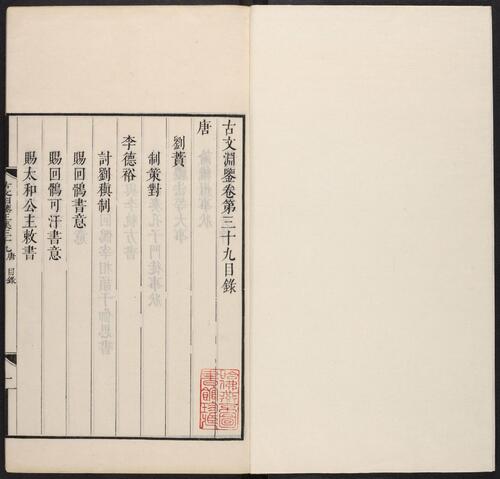 古文淵鑒卷第三十九目錄
唐
劉蕡
制策對
李德裕
討劉稹制
賜回鶻書意
賜回鶻可汗書意
賜太和公主敕書
目錄
一